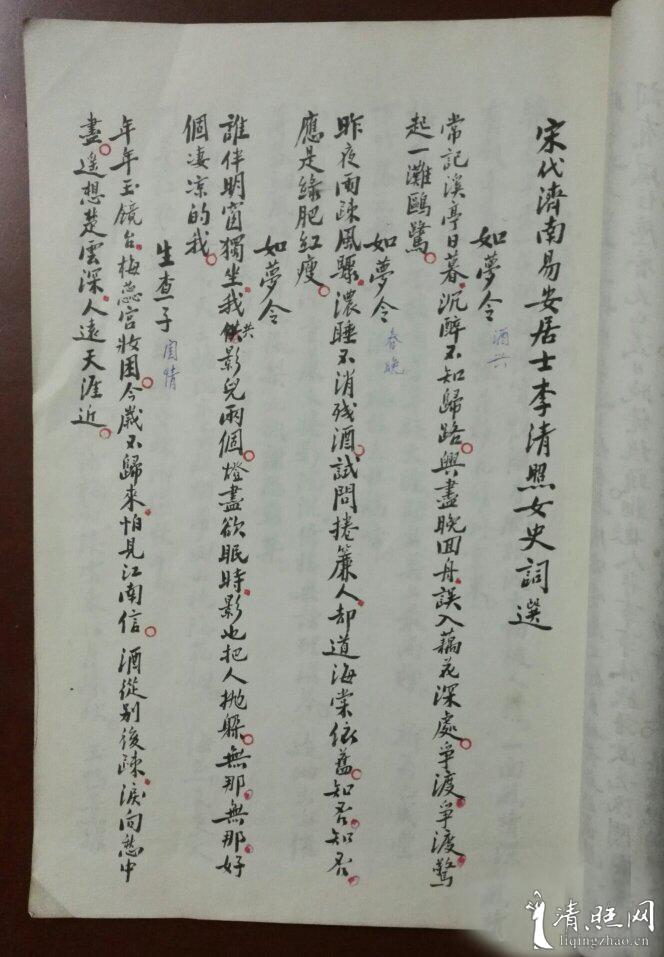 宋代濟南易安居士李清照女史詞選
如夢令 酒興
常記溪亭日暮沉醉不知歸路興盡晚回舟誤入藕花深處爭渡爭渡驚
起一灘鷗鷺
如夢令 春晚
昨夜雨疎風驟濃睡不消残酒試問捲簾人却道海棠依舊知否知否
應是綠肥紅瘦
如夢令
誰伴明窗獨坐我共影兒兩個燈盡欲眠時影也把人抛躱無那無那好
個凄凉的我
生查子 閨情
年年玉鏡台梅蕊宮妝困今歲不歸來怕見江南信 酒從别後疎淚向愁中
盡遥想楚雲深人遠天涯近
清照网
liqingzhao.cn